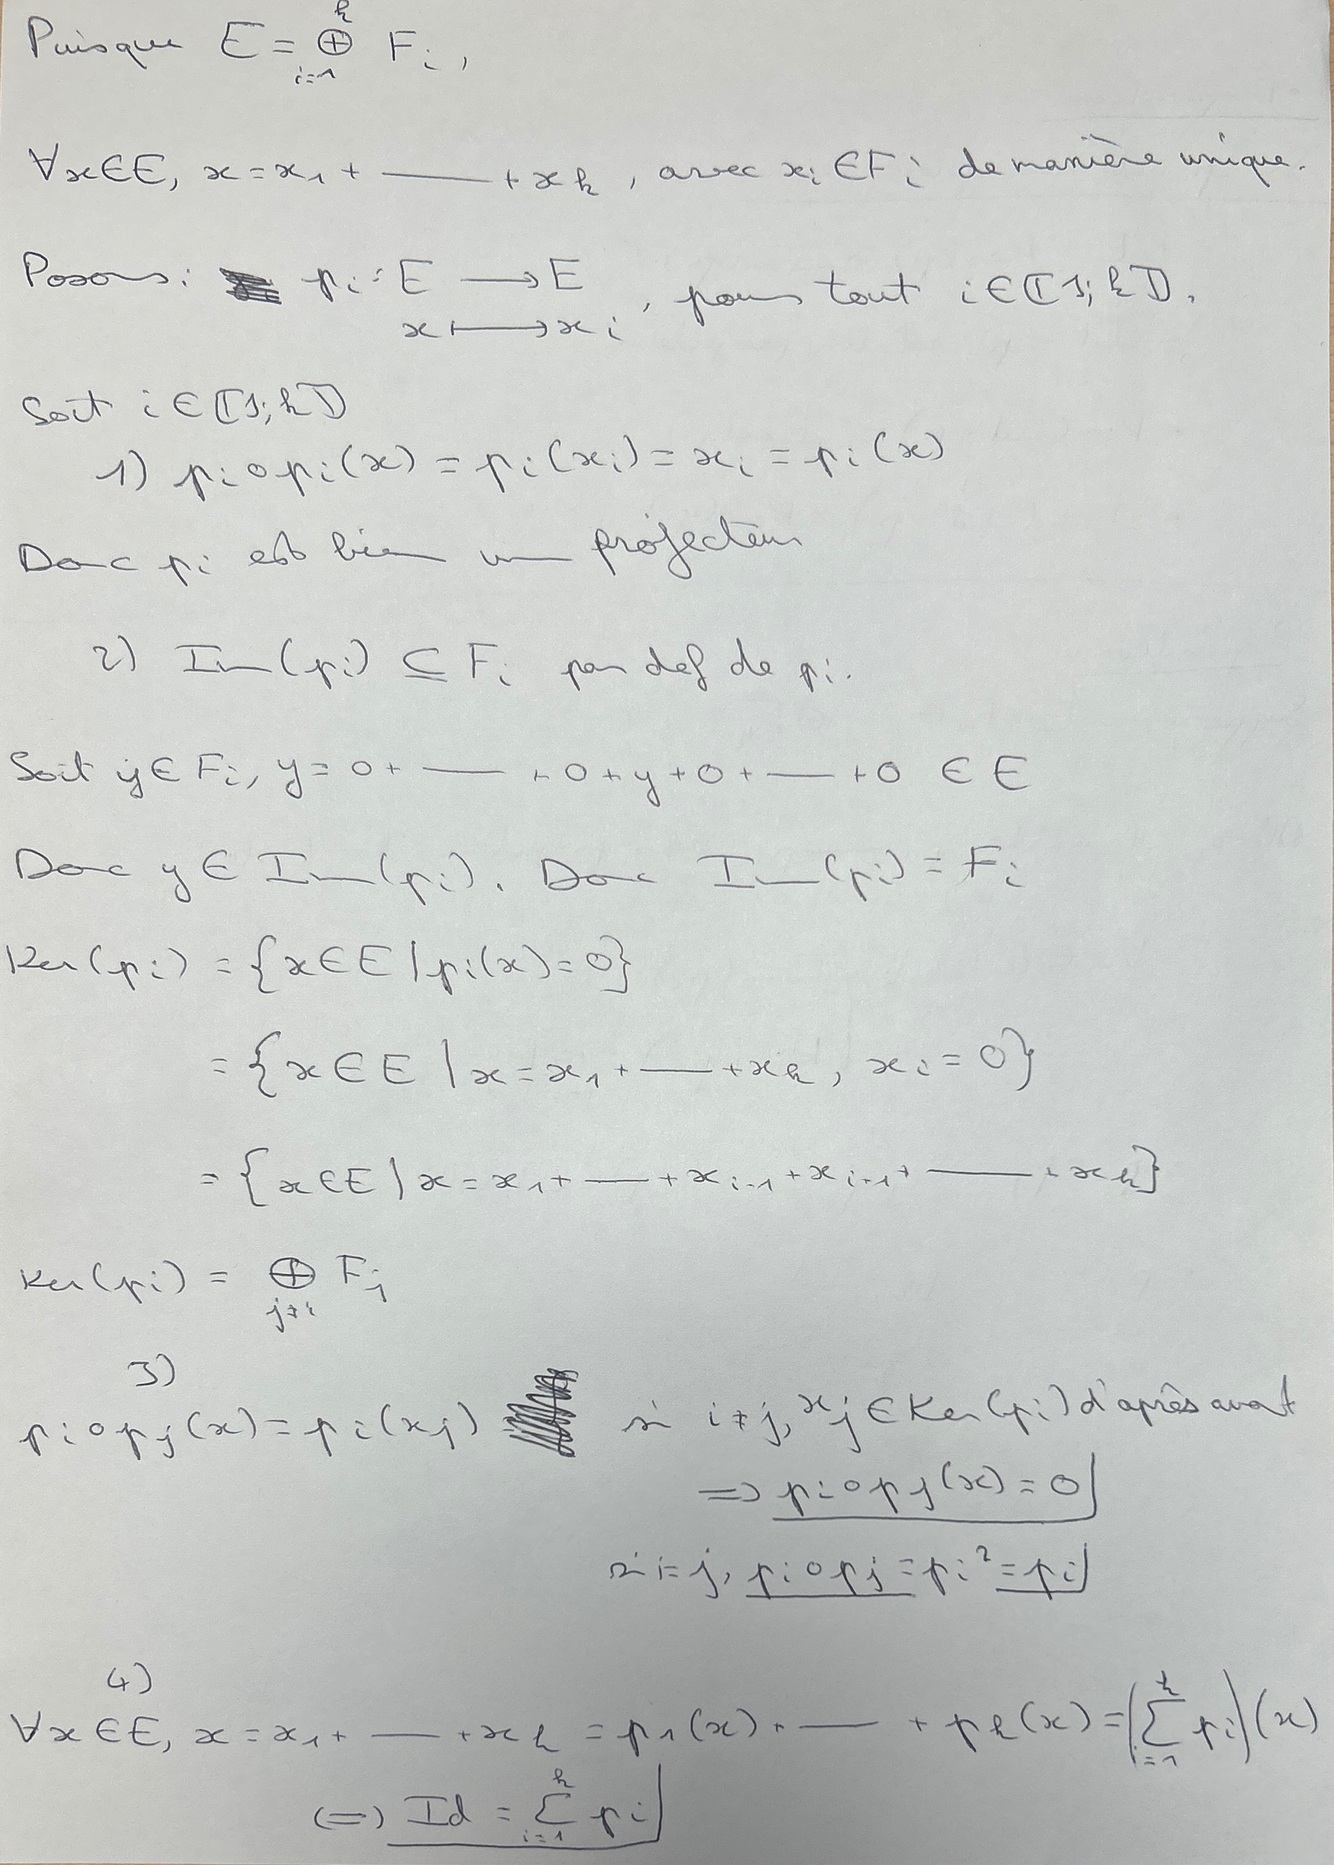 Puisque E = ⊕_{i=1}^{k} F_i,
∀x∈E, x = x_1 + — + x_k, avec x_i ∈ F_i de manière unique.
Posons: p_i : E ⟶ E, x ⟼ x_i, pour tout i ∈ ⟦1; k⟧.
Soit i ∈ ⟦1; k⟧
1) p_i ∘ p_i(x) = p_i(x_i) = x_i = p_i(x)
Donc p_i est bien un projecteur
2) Im(p_i) ⊆ F_i par def de p_i.
Soit y ∈ F_i, y = 0 + — + 0 + y + 0 + — + 0 ∈ E
Donc y ∈ Im(p_i). Donc Im(p_i) = F_i
Ker(p_i) = {x∈E | p_i(x) = 0}
= {x ∈ E | x = x_1 + — + x_k, x_i = 0}
= {x∈E | x = x_1 + — + x_{i-1} + x_{i+1} + — + x_k}
Ker(p_i) = ⊕_{j≠i} F_j
3)
p_i ∘ p_j(x) = p_i(x_j) si i≠j, x_j ∈ Ker(p_i) d'après avant
⟹ p_i ∘ p_j(x) = 0
si i=j, p_i ∘ p_j = p_i² = p_i
4)
∀x∈E, x = x_1 + — + x_k = p_1(x) + — + p_k(x) = (∑_{i=1}^{k} p_i)(x)
(=) Id = ∑_{i=1}^{k} p_i